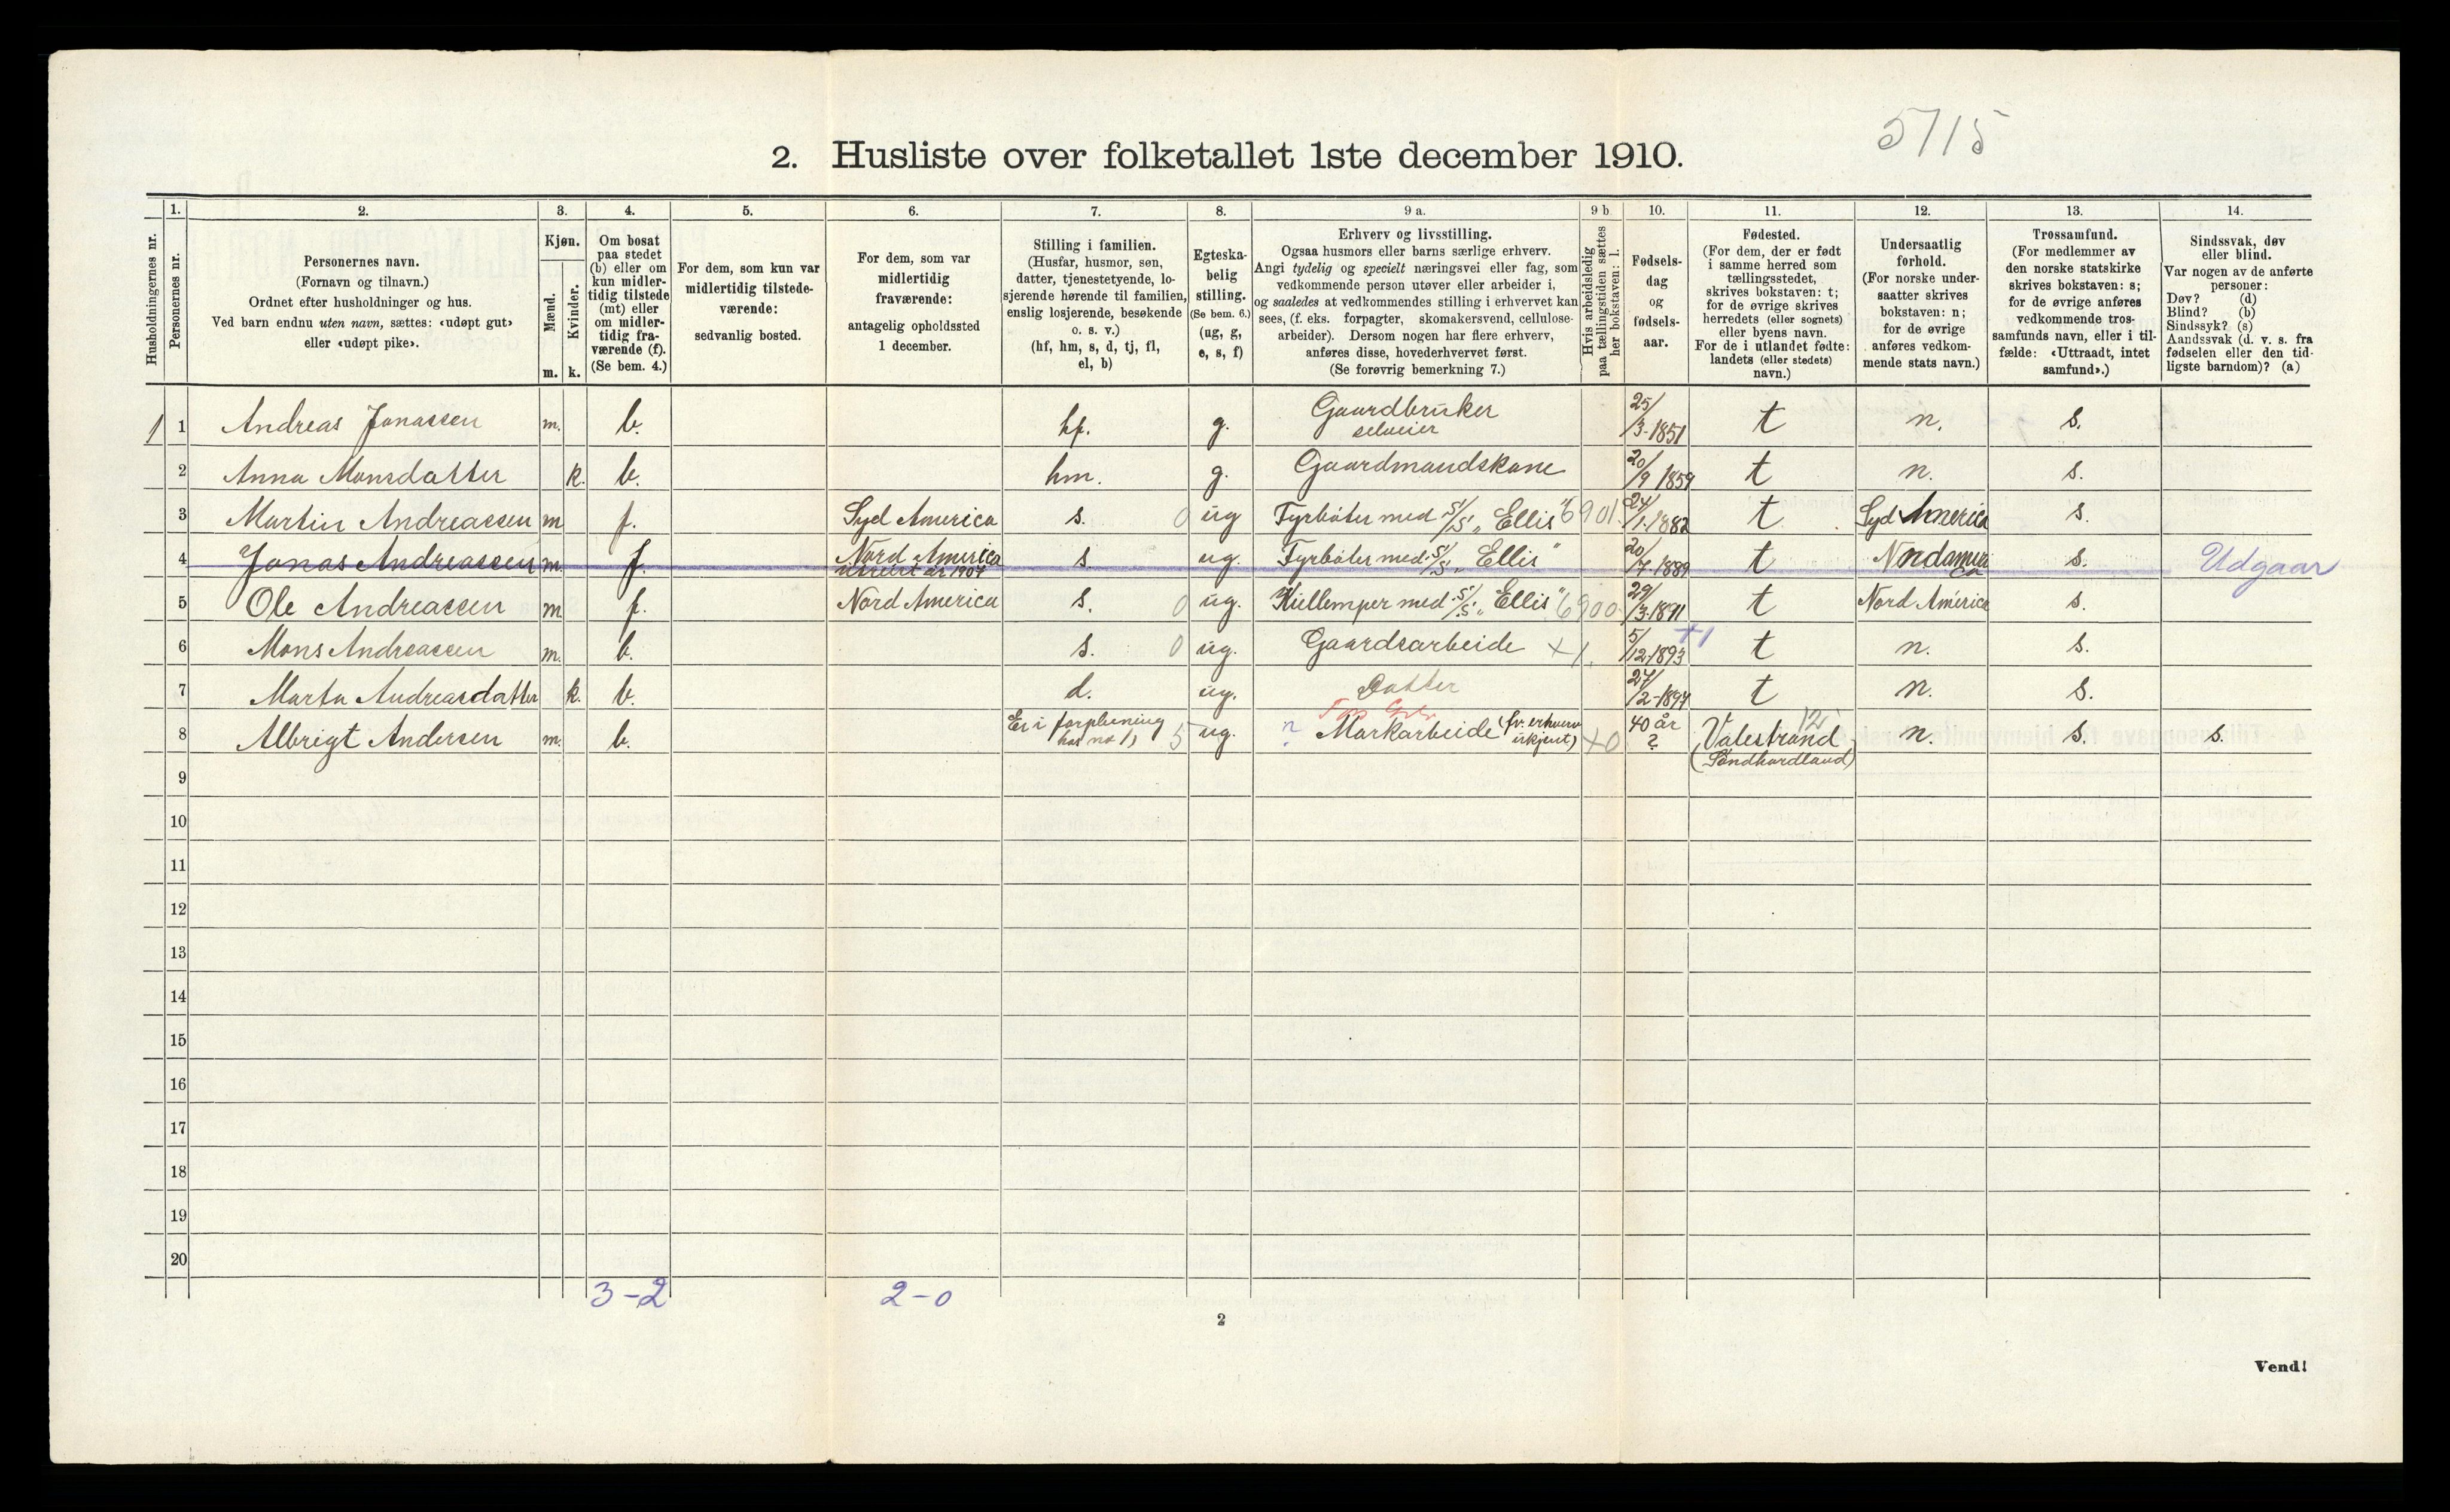 5715
2. Husliste over folketallet 1ste december 1910.
Husholdningernes nr.
1.
Personernes nr.
2.
Personernes navn.
(Fornavn og tilnavn.)
Ordnet efter husholdninger og hus.
Ved barn endnu uten navn, sættes: «udøpt gut»
eller «udøpt pike».
3.
Kjøn.
Mænd.
Kvinder.
m. k.
4.
Om bosat
paa stedet
(b) eller om
kun midler-
tidig tilstede
(mt) eller
om midler-
tidig fra-
værende (f).
(Se bem. 4.)
5.
For dem, som kun var
midlertidig tilstede-
værende:
sedvanlig bosted.
6.
For dem, som var
midlertidig
fraværende:
antagelig opholdssted
1 december.
7.
Stilling i familien.
(Husfar, husmor, søn,
datter, tjenestetyende, lo-
sjerende hørende til familien,
enslig losjerende, besøkende
o. s. v.)
(hf, hm, s, d, tj, fl,
el, b)
8.
Egteska-
belig
stilling.
(Se bem. 6.)
(ug, g,
e, s, f)
9 a.
Erhverv og livsstilling.
Ogsaa husmors eller barns særlige erhverv.
Angi tydelig og specielt næringsvei eller fag, som
vedkommende person utøver eller arbeider i,
og saaledes at vedkommendes stilling i erhvervet kan
sees, (f. eks. forpagter, skomakersvend, cellulose-
arbeider). Dersom nogen har flere erhverv,
anføres disse, hovederhvervet først.
(Se forøvrig bemerkning 7.)
9 b
Hvis arbeidsledig
paa tællingstiden sættes
her bokstaven: l.
10.
Fødsels-
dag
og
fødsels-
aar.
11.
Fødested.
(For dem, der er født
i samme herred som
tællingsstedet,
skrives bokstaven: t;
for de øvrige skrives
herredets (eller sognets)
eller byens navn.
For de i utlandet fødte:
landets (eller stedets)
navn.)
12.
Undersaatlig
forhold.
(For norske under-
saatter skrives
bokstaven: n;
for de øvrige
anføres vedkom-
mende stats navn.)
13.
Trossamfund.
(For medlemmer av
den norske statskirke
skrives bokstaven: s;
for de øvrige anføres
vedkommende tros-
samfunds navn, eller i til-
fælde: «Uttraadt, intet
samfund».)
14.
Sindssvak, døv
eller blind.
Var nogen av de anførte
personer:
Døv? (d)
Blind? (b)
Sindssyk? (s)
Aandssvak (d. v. s. fra
fødselen eller den tid-
ligste barndom)? (a)
1 1 Andreas Jonassen m. b. hf. g. Gaardbruker selveier 25/3-1851 t n. s.
2 Anna Monsdatter k. b. hm. g. Gaardmandskone 20/9 1859 t n. s.
3 Martin Andreassen m f. Syd America s. 0 ug Fyrbøter med S/S „Ellis" 6901 24/1-1882 t. Syd America s.
4 Jonas Andreassen m. f. Nord America utreist år 1907 s. ug. Fyrbøter med S/S „Ellis" 20/7-1889 t Nordamerica s. Udgaar
5 Ole Andreassen m f. Nord America s. 0 ug. Kullemper med S/S „Ellis" 6900 29/3-1891 t Nord America s.
6 Mons Andreassen m. b. s. 0 ug. Gaardsarbeide +1. 5/12-1893 +1 t n. s.
7 Marta Andreasdatter k. b. d. ug. Datter 27/2-1897 t n. s.
8 Albrigt Andersen m. b. Er i forpleining hos no 1) 5 ug. n Markarbeide (fv. erhverv ukjent) +0 40 år ? 12 Valestrand (Søndhordland) n. s. s.
9
10
11
12
13
14
15
16
17
18
19
20
3-2 2-0
2
Vend!